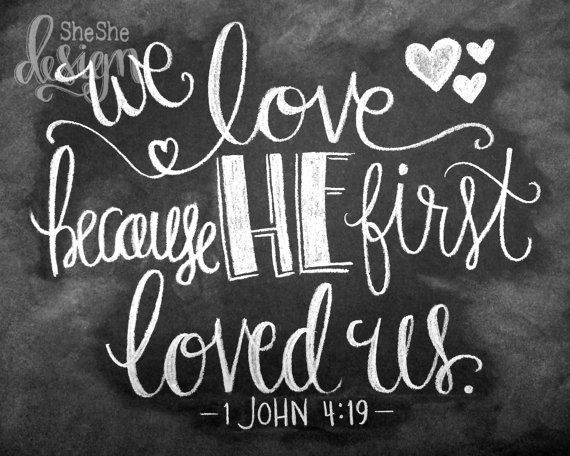 SheShe
design
we love
because HE first
loved us.
– 1 JOHN 4:19 –